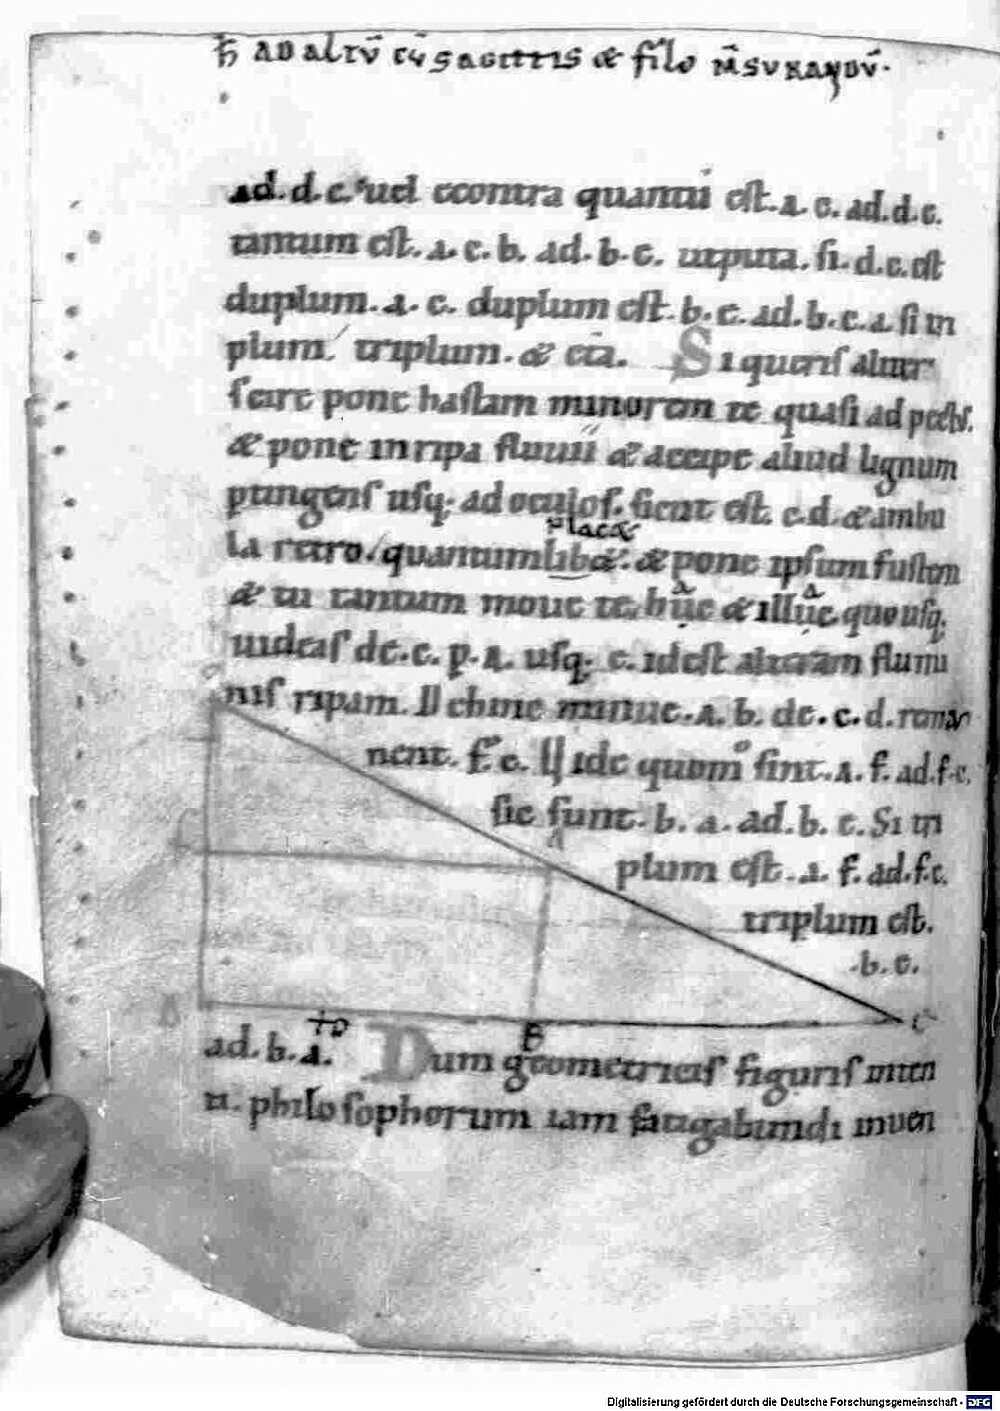 ħ AD ALTV̄ CV̄ SAGITTIS & filo M̄SVRANDV̄·
ad. d. e. uel econtra quantū est. a. c. ad. d. e.
tantum est. a. c. b. ad. b. c. utputa. si. d. e. est
duplum. a. c. duplum est. b. c. ad. b. c. a. si tri
plum. triplum. & c̄ia. Si queris aliter
scire pone hastam minorem te quasi ad pect;.
& pone in ripa fluuii & accipe aliud lignum
ptingens usq; ad oculos. sicut est. c. d. & ambu
placet
la retro. quantumlib&. & pone ipsum fustem
& tu tantum moue te. huc & illuc. quousq;
uideas de. e. p. a. usq; c. idest alteram flumi
nis ripam. Dehinc minue. a. b. de. c. d. rema
nent. f. c. Uide quom̊ sint. a. f. ad. f. e.
sic sunt. b. a. ad. b. c. Si tri
A
plum est. a. f. ad. f. c.
triplum est.
. b. c.
C
B
ad. b. a. Dum geometricis figuris inten
ti. philosophorum iam fatigabundi inuen
Digitalisierung gefördert durch die Deutsche Forschungsgemeinschaft - DFG